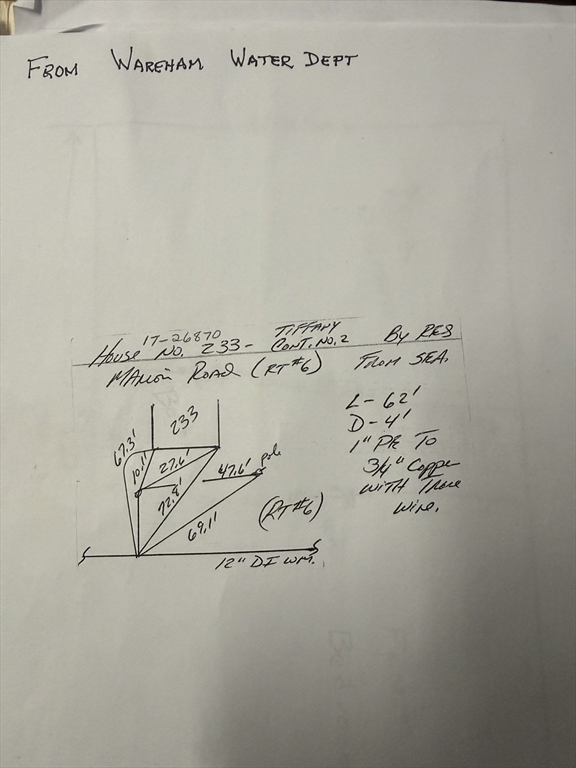 FROM WAREHAM WATER DEPT
17-26870
TIFFANY
HOUSE NO. 233- CONT. NO. 2 By RES
MARION ROAD (RT#6) FROM SEA.
L-62'
D-4'
1" PE TO
3/4" COPPER
WITH TRACE
WIRE.
233
67.3'
10.1'
27.6'
72.8'
47.6'
pole
69.1'
(RT#6)
12" D.I WM.